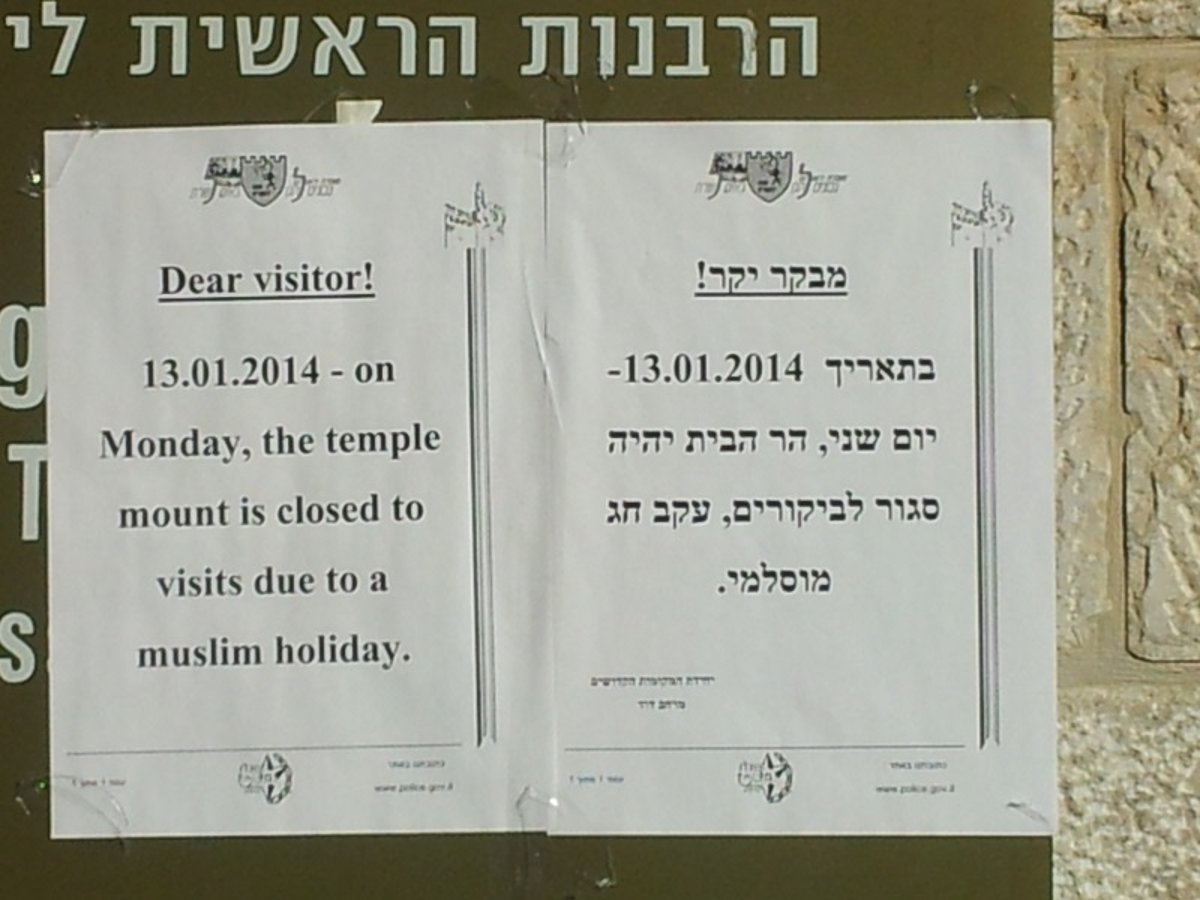 הרבנות הראשית לי
g
T
s
Dear visitor!
13.01.2014 - on
Monday, the temple
mount is closed to
visits due to a
muslim holiday.
עמוד 1 מתוך 1
כתובתנו באתר
www.police.gov.il
מבקר יקר!
בתאריך 13.01.2014-
יום שני, הר הבית יהיה
סגור לביקורים, עקב חג
מוסלמי.
יחידת המקומות הקדושים
מרחב דוד
עמוד 1 מתוך 1
כתובתנו באתר
www.police.gov.il